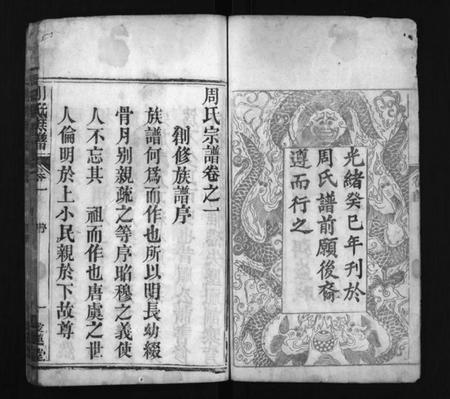 光緒癸巳年刊於
周氏譜前願後裔
遵而行之
周氏宗譜卷之一
創修族譜序
族譜何為而作也所以明長幼綴
骨月别親疏之等序昭穆之義使
人不忘其 祖而作也唐虞之世
人倫明於上小民親於下故尊
周氏族譜
序
一